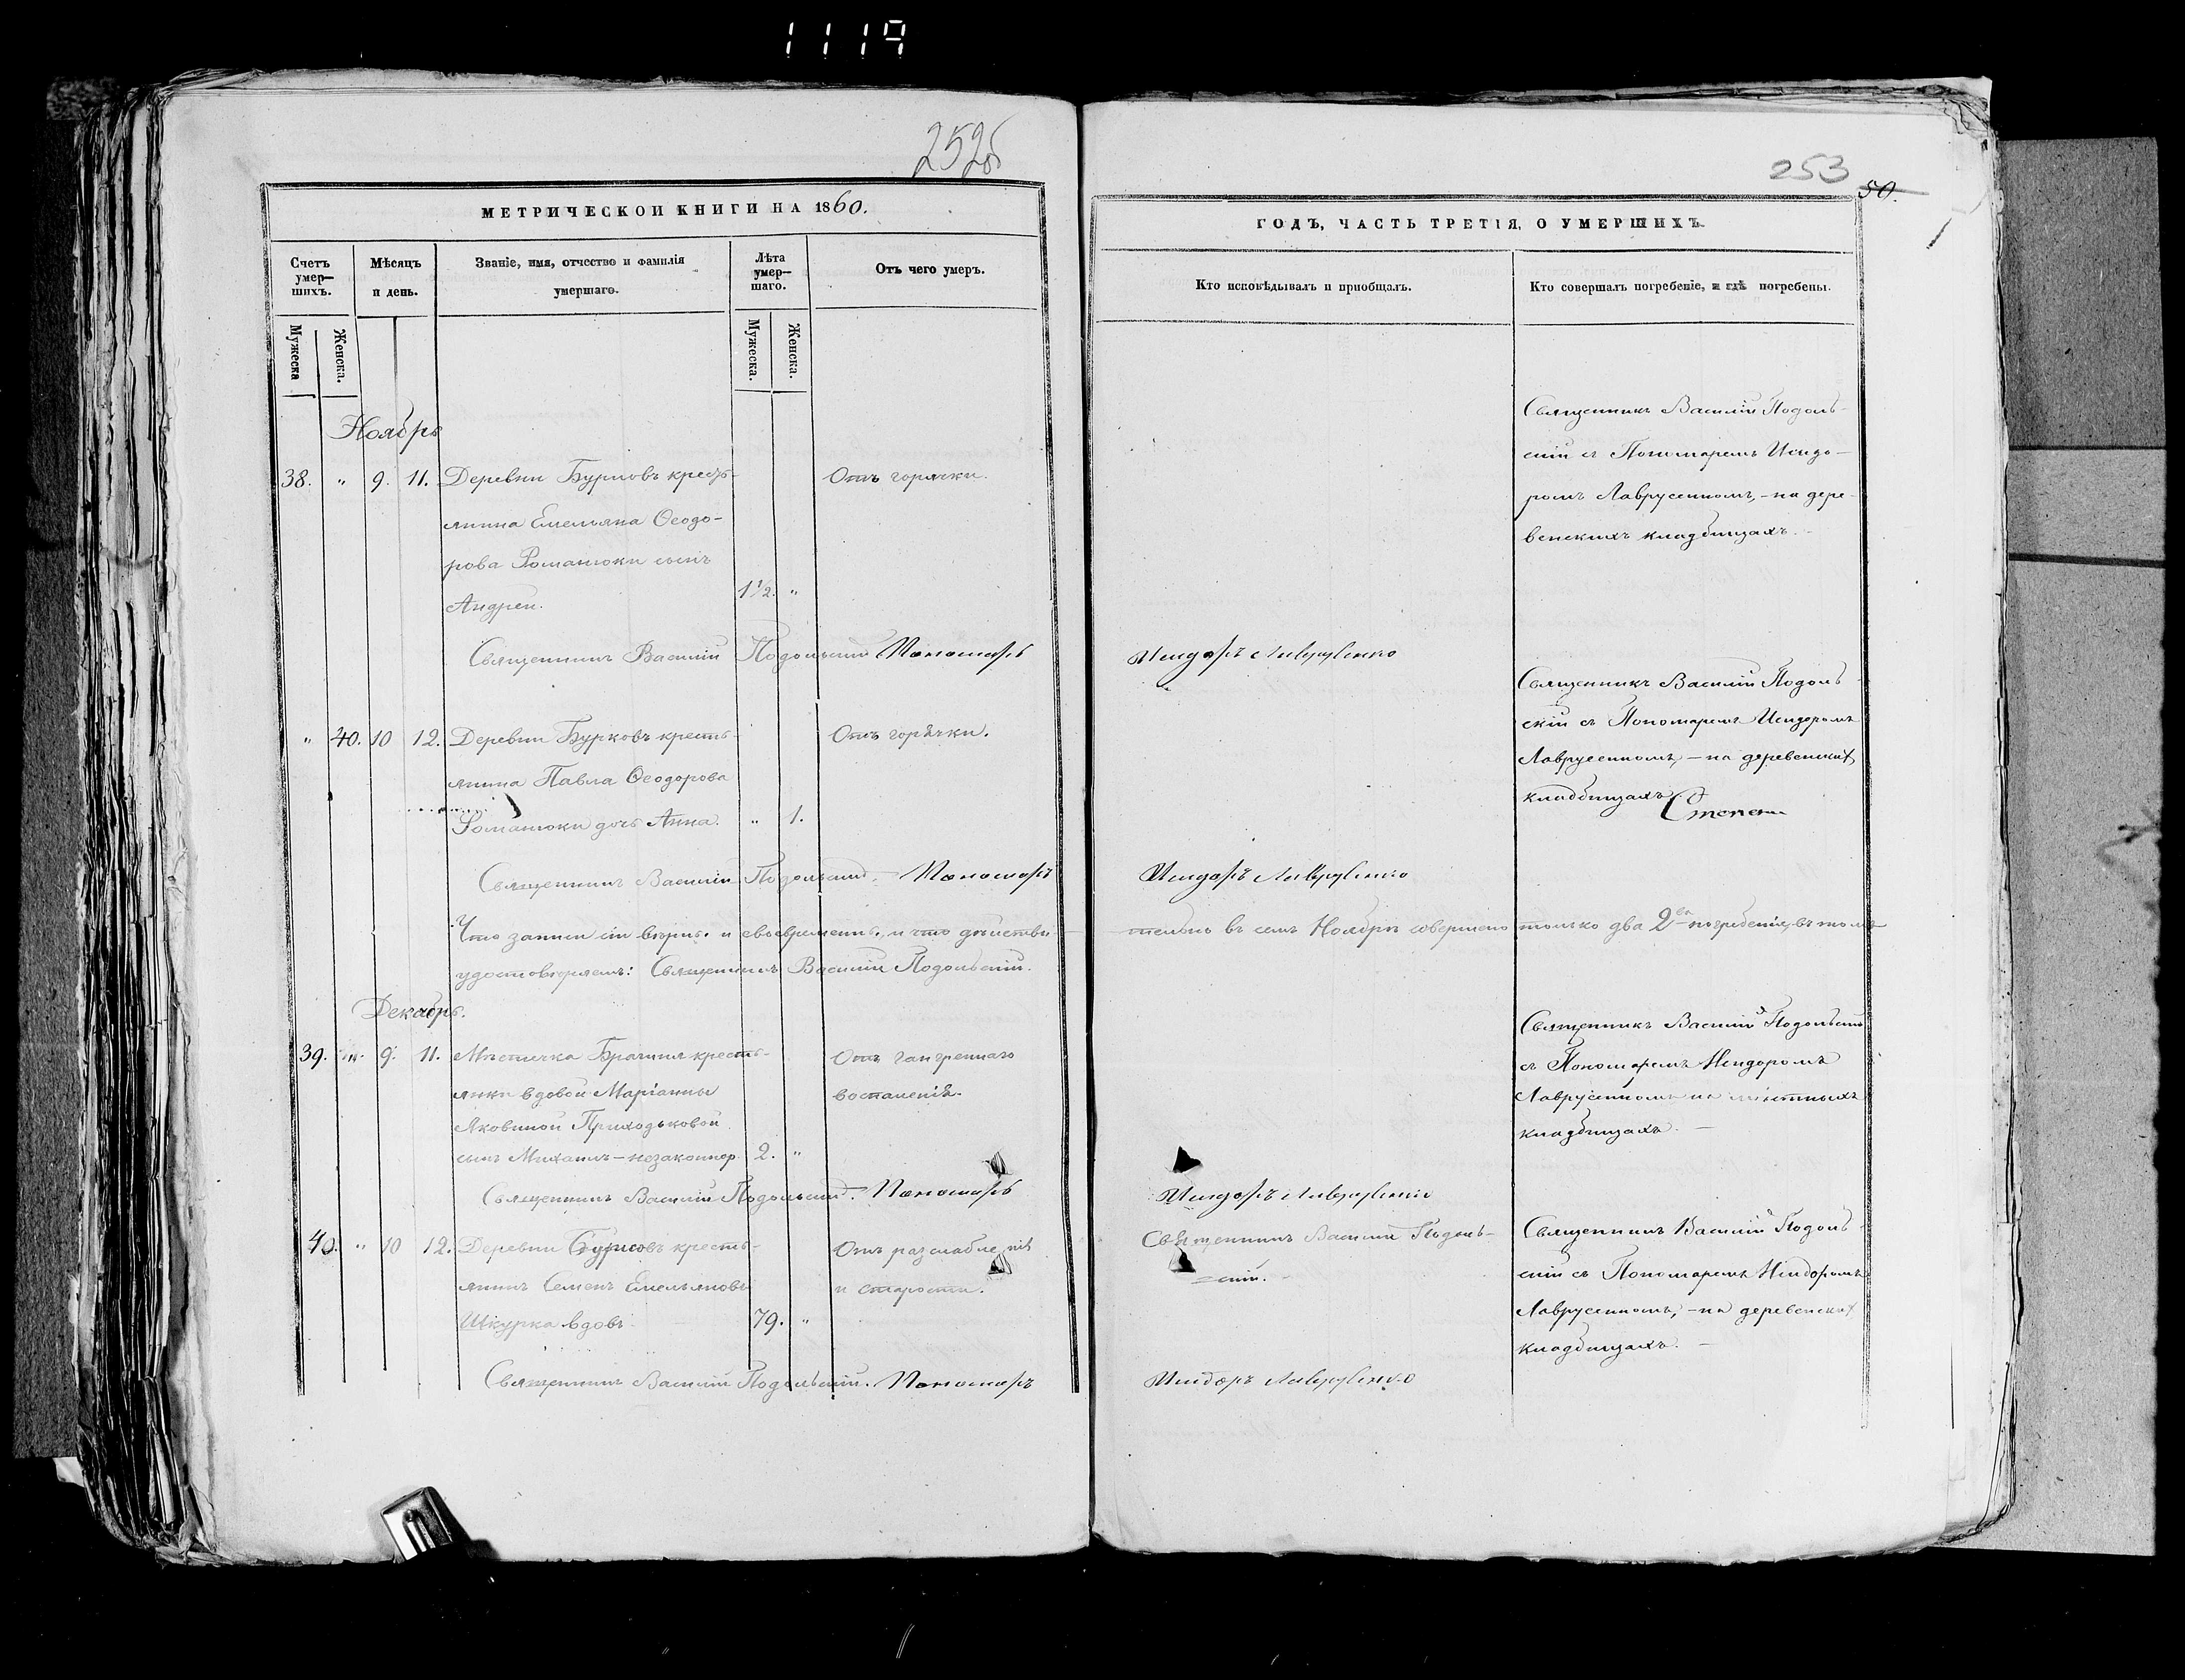 1119
252об
МЕТРИЧЕСКОЙ КНИГИ НА 1860.
Счетъ умер—шихъ.
Мѣсяцъ и день.
Званіе, имя, отчество и фамилія умершаго.
Лѣта умер—шаго.
Отъ чего умеръ.
Мужеска
Женска.
Мужеска.
Женска.
Ноябрь
38. „ 9. 11. Деревни Бурковъ кресть-
янина Емельяна Ѳеодо-
рова Романюки сынъ
Андрей. 1½. „
Отъ горячки.
Священникъ Василій Подольскій Пономарь
„ 40. 10 12. Деревни Бурковъ кресть-
янина Павла Ѳеодорова
Романюки дочь Анна. „ 1.
Отъ горячки.
Священникъ Василій Подольскій. — Пономарь
Что записи сіи вѣрны и своевременны, и что дѣйстви-
удостовѣряемъ: Священникъ Василій Подольскій.
Декабрь.
39. 9. 11. Мѣстечка Брагиня кресть-
янки вдовой Маріанны
Яковиной Приходьковой
сынъ Михаилъ — незаконнор. 2. „
Отъ гангреннаго
воспаленія.
Священникъ Василій Подольскій. Пономарь
40. „ 10 12. Деревни Бурковъ кресть-
янинъ Семенъ Емельяновъ
Шкурка вдовъ 79. „
Отъ разслабленія
и старости.
Священникъ Василій Подольскій. Пономарь
253
50.
ГОДЪ, ЧАСТЬ ТРЕТІЯ, О УМЕРШИХЪ.
Кто исповѣдывалъ и пріобщалъ.
Кто совершалъ погребеніе, и гдѣ погребены.
Священникъ Василій Подоль-
скій съ Пономаремъ Исидо-
ромъ Лаврусенкомъ, — на дере-
венскихъ кладбищахъ. —
Исидоръ Лаврусенко
Священникъ Василій Подоль-
скій съ Пономаремъ Исидоромъ
Лаврусенкомъ, — на деревенских
кладбищахъ.
Исидоръ Лаврусенко
тельно въ семъ Ноябрѣ совершено только два 2ва погребенія, въ томъ
Священникъ Василій Подольскій
съ Пономаремъ Исидоромъ
Лаврусенкомъ на мѣстныхъ
кладбищахъ. —
Исидоръ Лаврусенко
Священникъ Василій Подоль-
скій.
Священникъ Василій Подоль-
скій съ Пономаремъ Исидоромъ
Лаврусенкомъ, — на деревенских
кладбищахъ. —
Исидоръ Лаврусенко